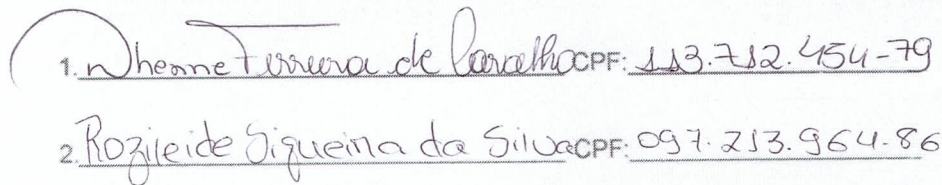 1. Dhenne Ferreira de Carvalho CPF: 113.712.454-79
2. Rozileide Siqueira da Silva CPF: 097.213.964-86